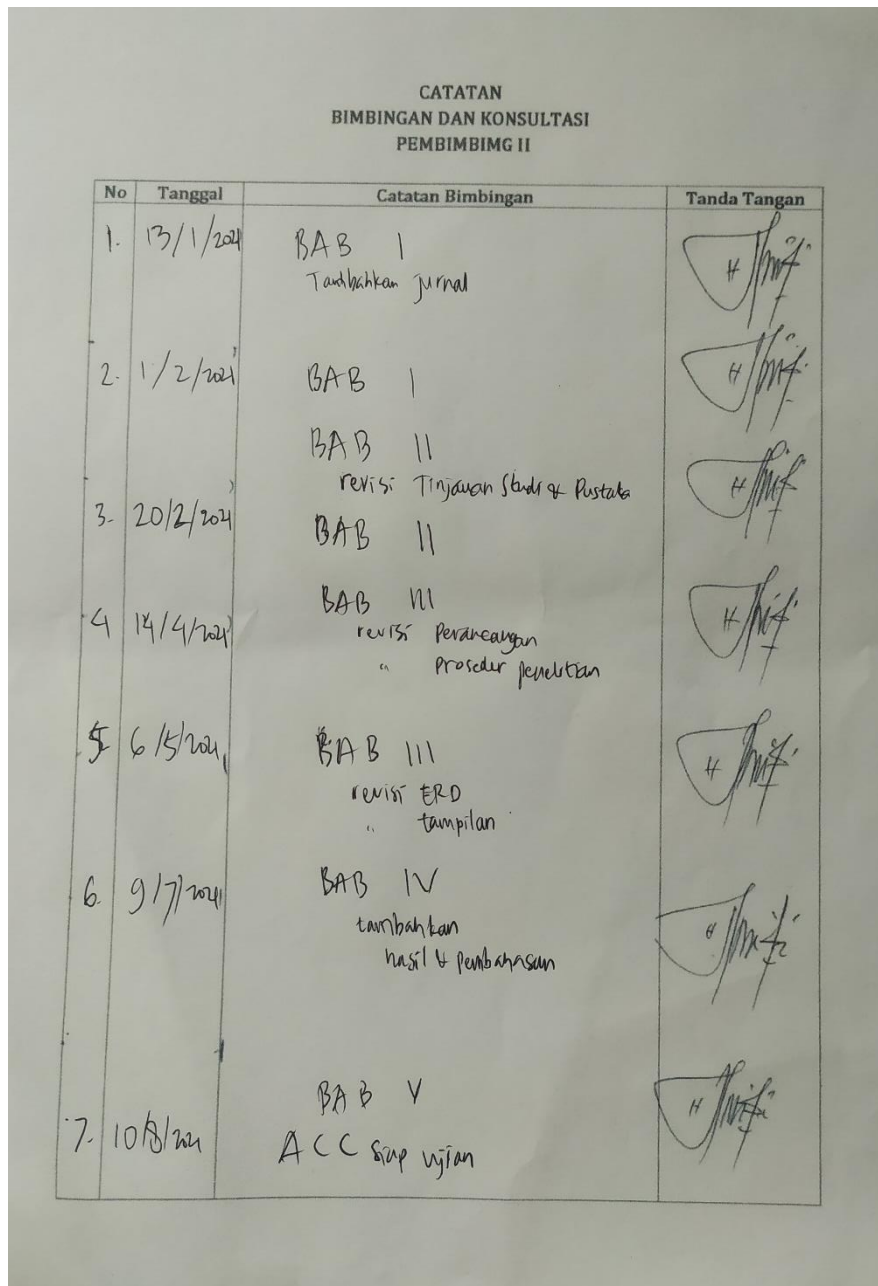 CATATAN
BIMBINGAN DAN KONSULTASI
PEMBIMBIMG II
No Tanggal Catatan Bimbingan Tanda Tangan
1. 13/1/2021 BAB I
Tambahkan jurnal
2. 1/2/2021 BAB I
BAB II
revisi Tinjauan Studi & Pustaka
3. 20/2/2021 BAB II
BAB III
4 14/4/2021 revisi Perancangan
" Prosedur penelitian
5 6/5/2021 BAB III
revisi ERD
" tampilan
6. 9/7/2021 BAB IV
tambahkan
hasil & pembahasan
BAB V
7. 10/8/2021 ACC siap ujian